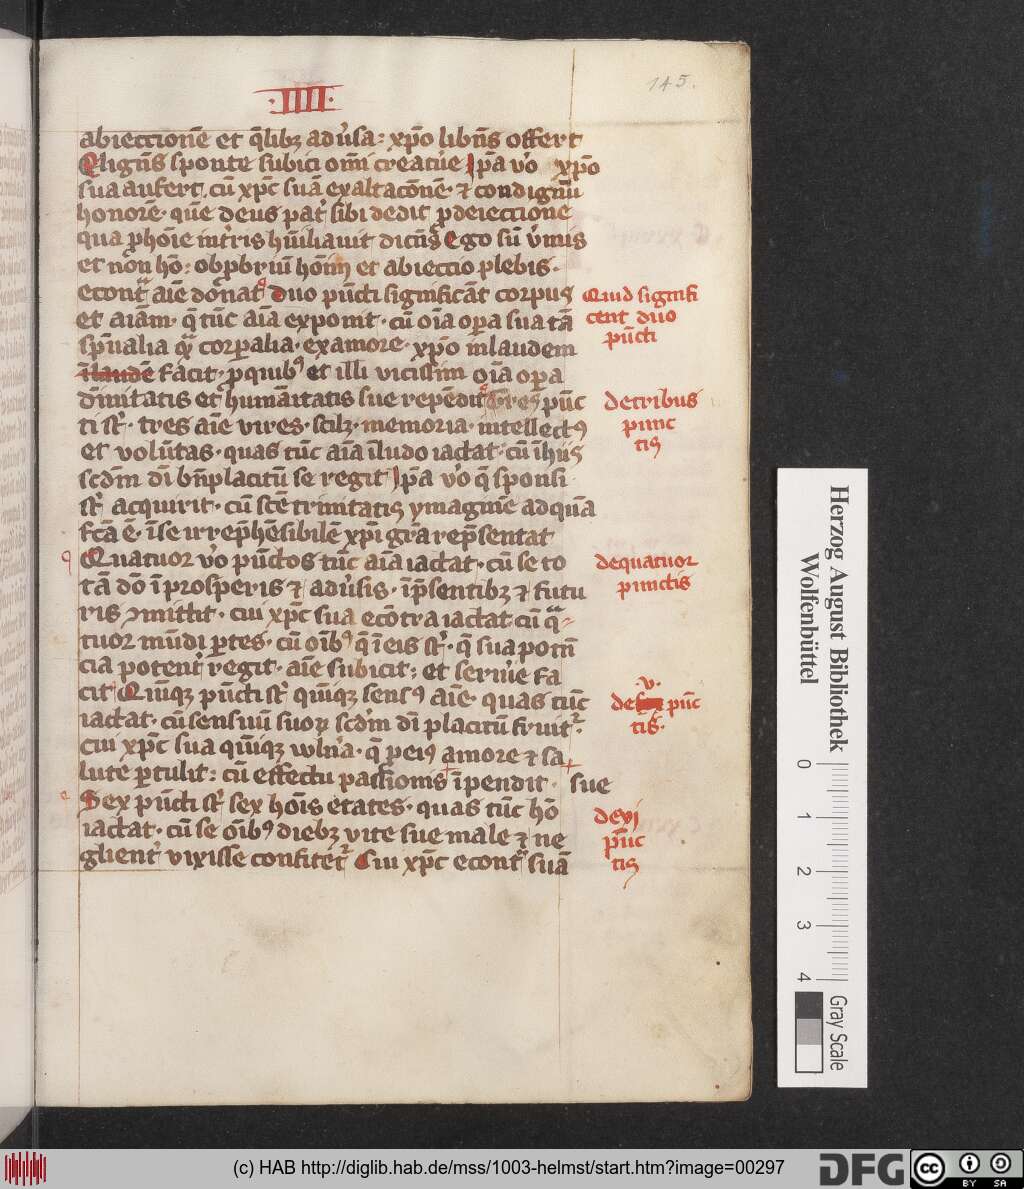 145.
·IIII·
abieccionē et q̄libꝫ adủsa: xp̄o libn̄s offert
Eligēs sponte subici om̄i creatūe Ip̄a ủo xp̄o
sua aufert, cū xp̄c suā exaltacōnē· ⁊ condignū
honorē· quē deus pat̉ sibi dedit ꝓ deieccione
qua ꝓ hoīe int̉ris hūiliauit dicēs Ego sū ủmis
et nōn hō: obꝓbriū hōm̄ et abieccio plebis·
econt̉ aīe dōnat Duo pūcti significāt corpus
et aīam· q̄ tūc aīa exponit· cū oīa oꝑa sua tā
sp̄ualia qͣ corꝑalia· ex amore· xp̄o in laudem
ī laudē facit· ꝓ quibꝰ et illi vicissim oīa oꝑa
diuinitatis et humāitatis sue repēdit Tres pūc
ti st̄· tres aīe vires· scilꝫ· memoria· intellectꝰ
et volūtas· quas tūc aīa ī ludo iactat· cū ī hiis
scdm̄ di bn̄placitū se regit Ip̄a ủo q̄ sponsi
st̄ acquirit· cū scē trinitatis ymaginē ad quā
fcā ē· ī se irrep̄hēsibilē xp̄i gr̄a rep̄sentat
Quatuor ủo pūctos tūc aīa iactat· cū se to
tā dō ī prosperis ⁊ adủsis· ī p̄sentibꝫ ⁊ futu
ris ꝯmittit· cui xp̄c sua ecōtra iactat cū qͣ
tuor mūdi ꝑtes· cū oībꝰ q̄ ī eis st̄· q̄ sua poten
cia potent̉ regit· aīe subicit: et seruīe fa
cit Quīqꝫ pūcti st̄ quīqꝫ sensꝰ aīe· quas tūc
iactat· cū sensuū suoꝝ scdm̄ di placitū fruit̉·
cui xp̄c sua quīqꝫ vuln̄a· q̄ ꝓ eiꝰ amore ⁊ sa
lute ꝑtulit: cū effectu passionis īpendit· sue
Sex pūcti st̄ sex hoīs etates· quas tūc hō
iactat· cū se oībꝰ diebꝫ vite sue male ⁊ ne
glient̉ vixisse confitet̉ Cui xp̄c econt̉ suā
Quid signifi
cent duo
pūcti
de tribus
punc
tis
de quatuor
punctis
de v· pūc
tis·
de vi
pūc
tis
Herzog August Bibliothek
Wolfenbüttel
0
1
2
3
4
Gray Scale
(c) HAB http://diglib.hab.de/mss/1003-helmst/start.htm?image=00297
DFG
cc
BY SA